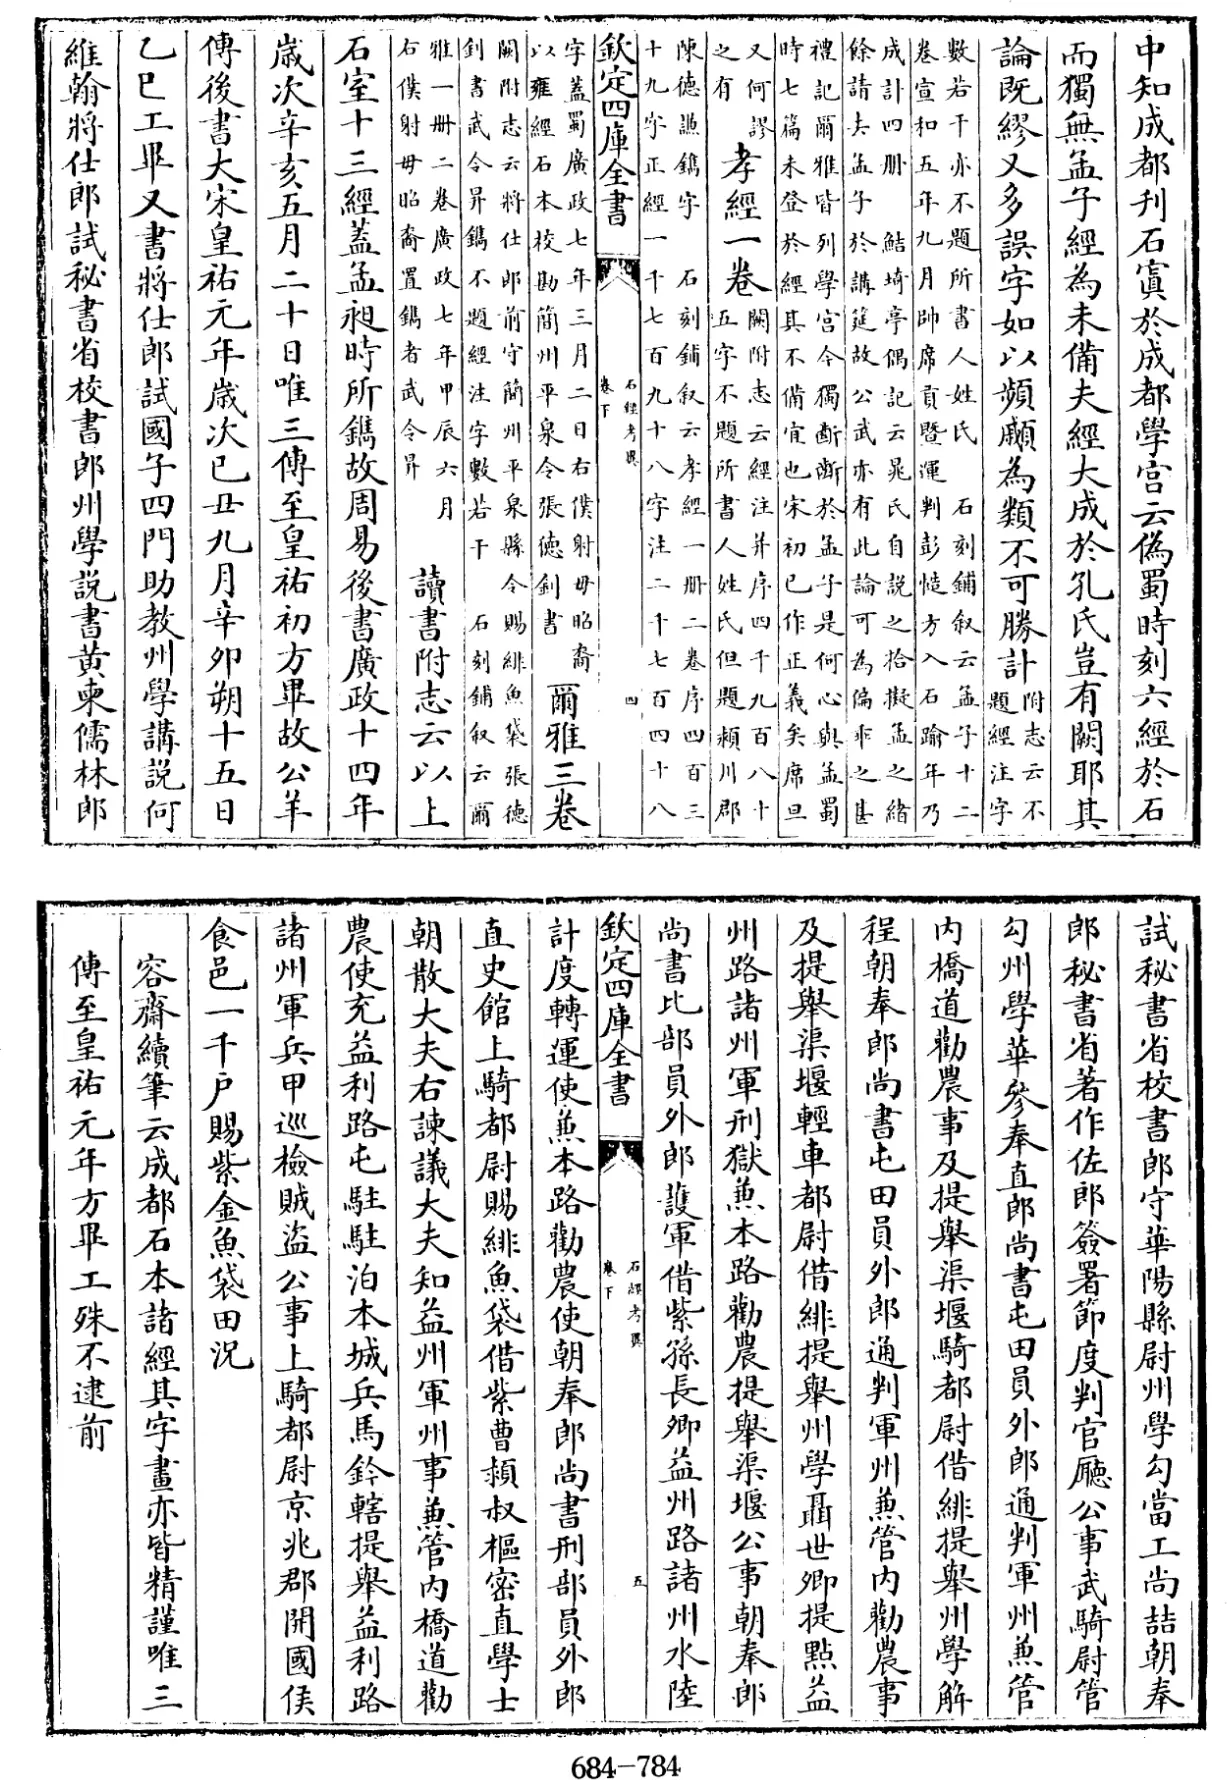 中知成都刊石寘於成都學宮云偽蜀時刻六經於石
而獨無孟子經為未備夫經大成於孔氏豈有闕耶其
論既繆又多誤字如以頻顣為類不可勝計附志云不題經注字
數若干亦不題所書人姓氏 石刻鋪叙云孟子十二
卷宣和五年九月帥席貢暨運判彭慥方入石踰年乃
成計四册 鮚埼亭偶記云晁氏自説之拾擬孟之緒
餘請去孟子於講筵故公武亦有此論可為偏乖之甚
禮記爾雅皆列學宮今獨斷斷於孟子是何心與孟蜀
時七篇未登於經其不備宜也宋初已作正義矣席旦
又何謬之有 孝經一卷闕附志云經注并序四千九百八十五字不題所書人姓氏但題潁川郡
陳德謙鐫字 石刻鋪叙云孝經一册二卷序四百三
十九字正經一千七百九十八字注二千七百四十八
欽定四庫全書 石經考異 卷下 四
字蓋蜀廣政七年三月二日右僕射毋昭裔
以雍經石本校勘簡州平泉令張德釗書 爾雅三卷
闕附志云將仕郎前守簡州平泉縣令賜緋魚袋張德
釗書武令昇鐫不題經注字數若干 石刻鋪叙云爾
雅一册二卷廣政七年甲辰六月
右僕射毋昭裔置鐫者武令昇 讀書附志云以上
石室十三經蓋孟昶時所鐫故周易後書廣政十四年
歲次辛亥五月二十日唯三傳至皇祐初方畢故公羊
傳後書大宋皇祐元年歲次己丑九月辛卯朔十五日
乙巳工畢又書將仕郎試國子四門助教州學講説何
維翰將仕郎試秘書省校書郎州學説書黄柬儒林郎
試秘書省校書郎守華陽縣尉州學勾當工尚喆朝奉
郎秘書省著作佐郎簽署節度判官廳公事武騎尉管
勾州學華參奉直郎尚書屯田員外郎通判軍州兼管
内橋道勸農事及提舉渠堰騎都尉借緋提舉州學解
程朝奉郎尚書屯田員外郎通判軍州兼管内勸農事
及提舉渠堰輕車都尉借緋提舉州學聶世卿提點益
州路諸州軍刑獄兼本路勸農提舉渠堰公事朝奉郎
尚書比部員外郎護軍借紫孫長卿益州路諸州水陸
欽定四庫全書 石經考異 卷下 五
計度轉運使兼本路勸農使朝奉郎尚書刑部員外郎
直史館上騎都尉賜緋魚袋借紫曹頴叔樞密直學士
朝散大夫右諫議大夫知益州軍州事兼管内橋道勸
農使充益利路屯駐駐泊本城兵馬鈐轄提舉益利路
諸州軍兵甲巡檢賊盜公事上騎都尉京兆郡開國侯
食邑一千户賜紫金魚袋田況
容齋續筆云成都石本諸經其字畫亦皆精謹唯三
傳至皇祐元年方畢工殊不逮前
684-784